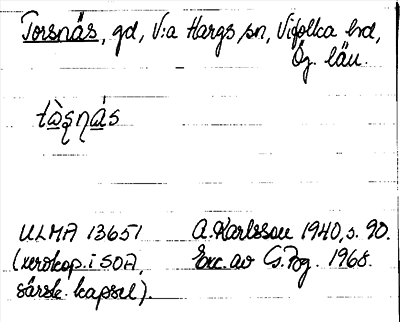 Torsnäs, gd, V:a Hargs sn, Vifolka hd,
Ög. län.
tàs̨nás
ULMA 13651 A. Karlsson 1940, s. 90.
(xerokop. i SOA, Exc. av G. Fog. 1968.
särsk. kapsel).